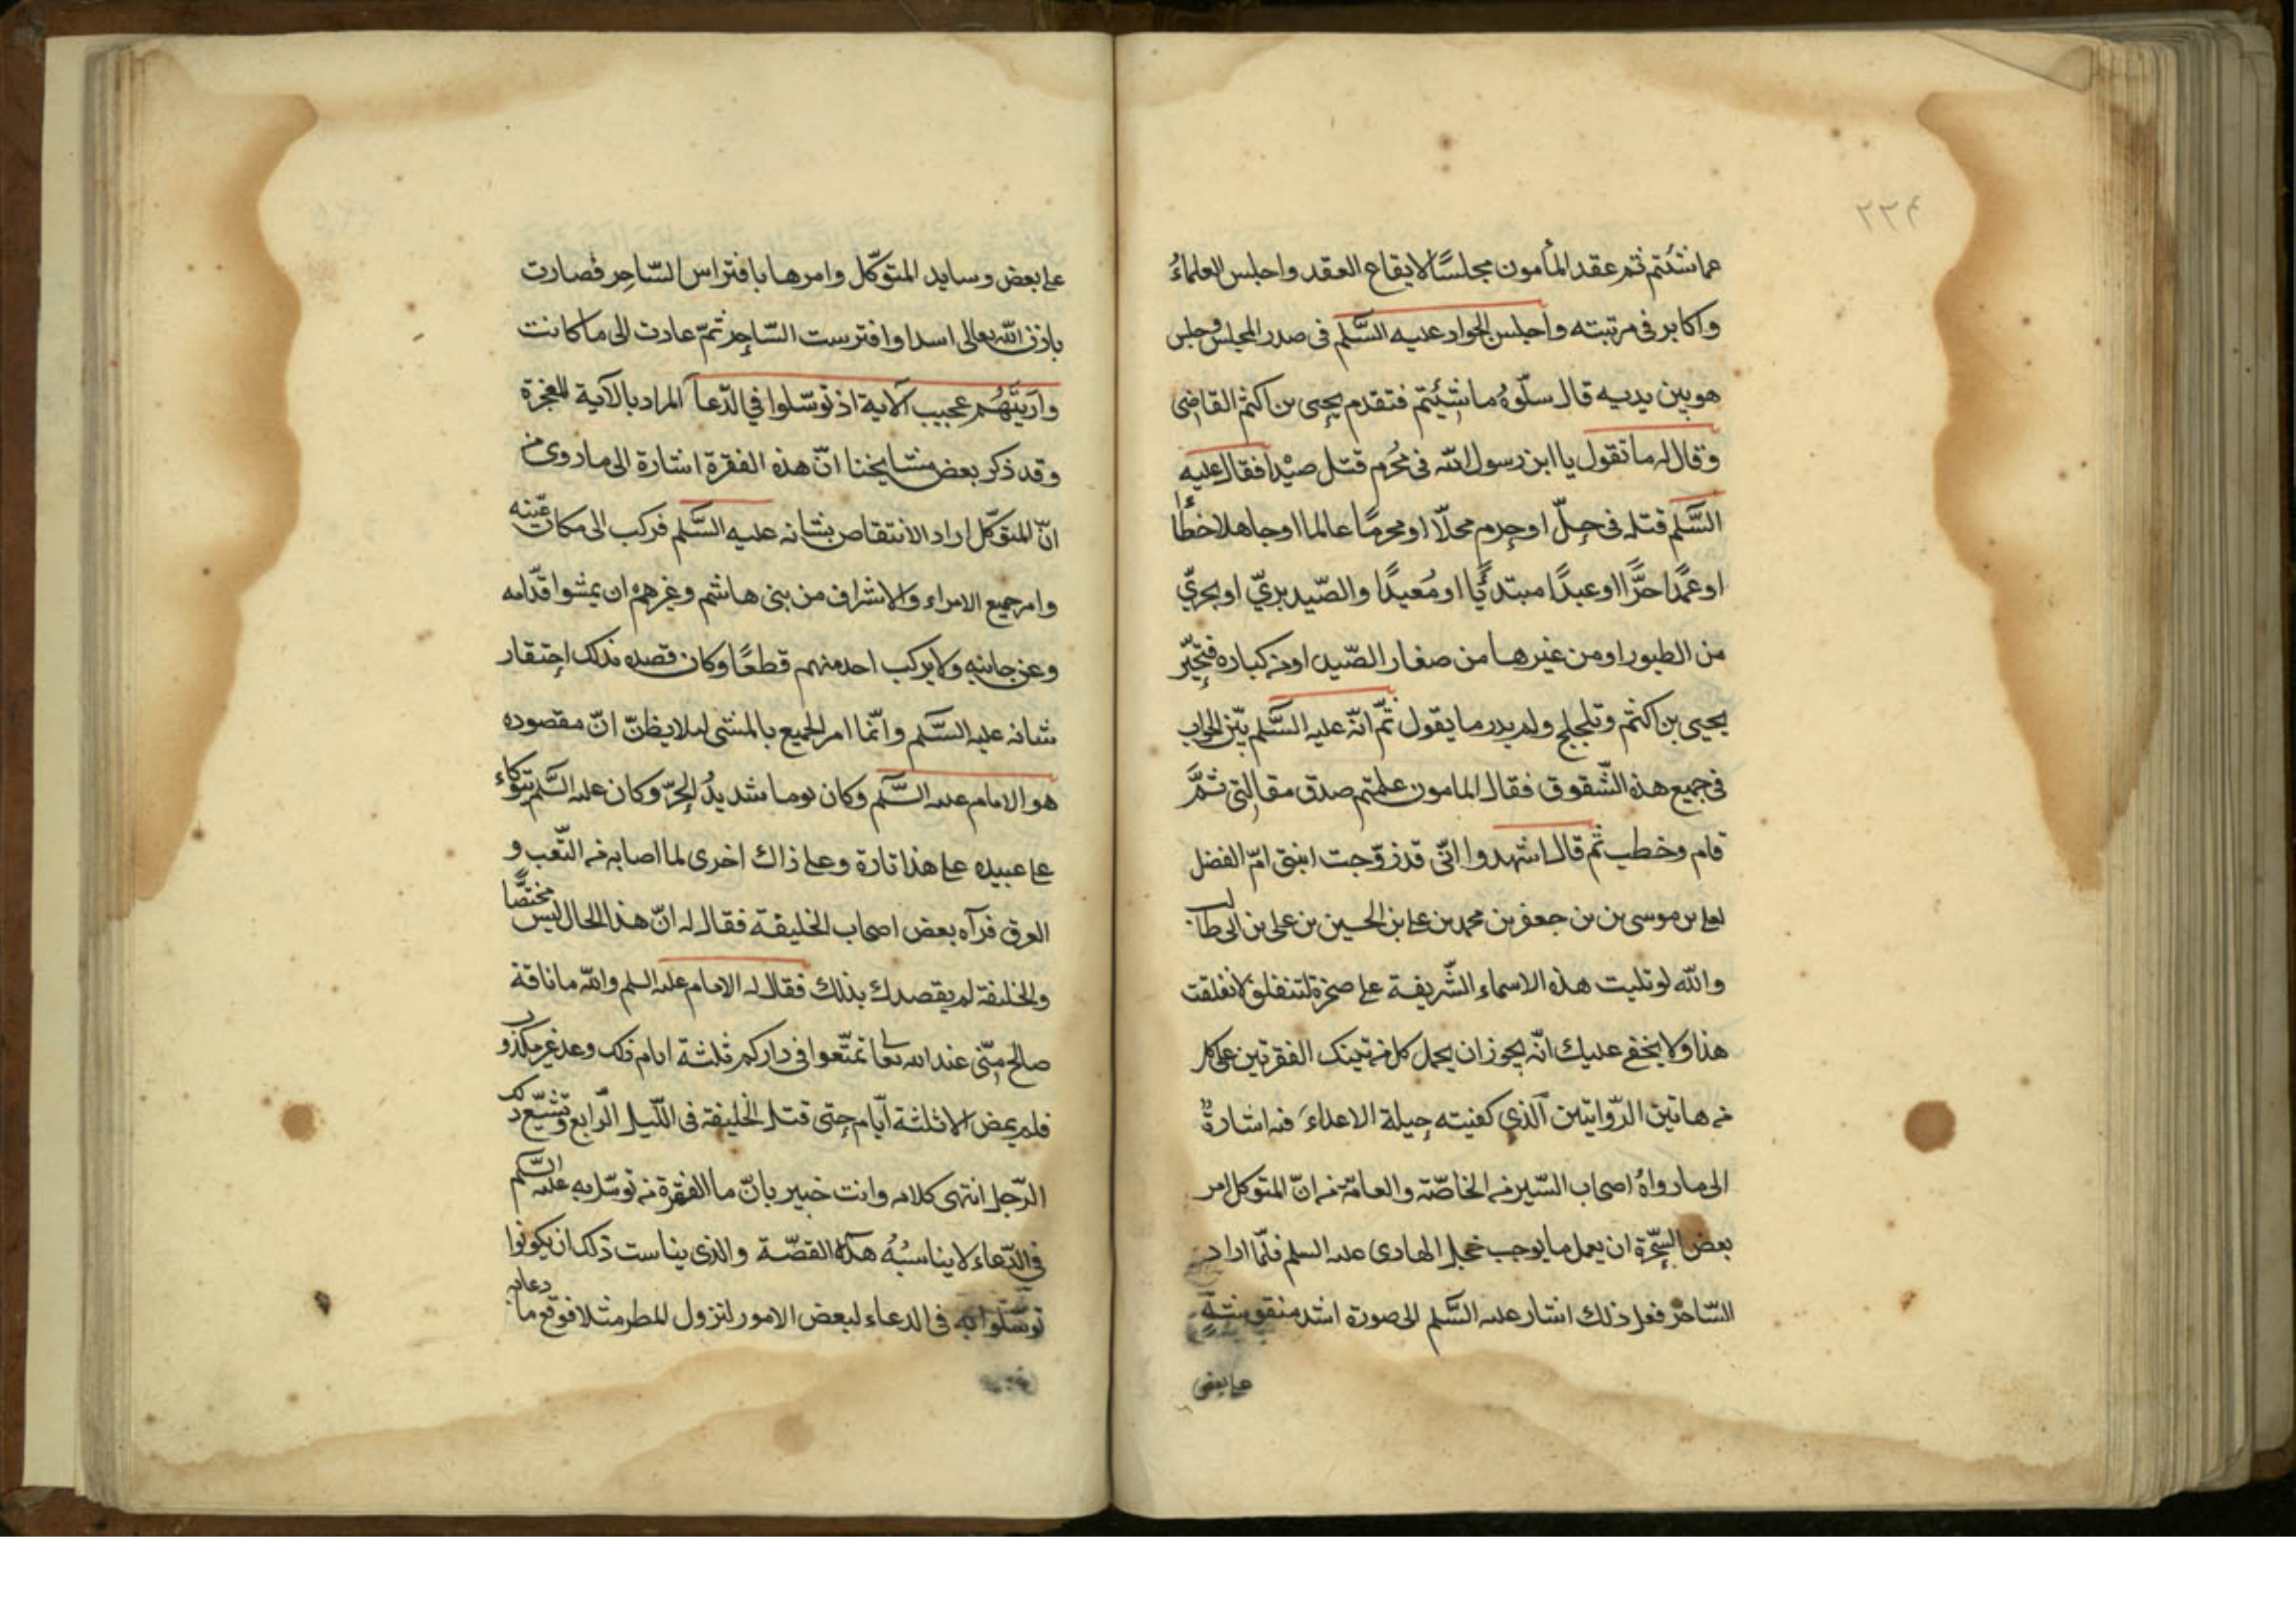 ۲۲۴
عما شئتم ثم عقد المأمون مجلسًا لايقاع العقد واجلس العلماءُ
واكابر فى مرتبته واجلس الجواد عليه السَّلم فى صدر المجلس وجلس
هو بين يديه قال سلوهُ ما شِئتم فتقدم يحيى بن اكثم القاضى
وقال له ما تقول يا ابن رسول الله فى مُحْرم قتل صيْدًا فقال عليه
السَّلم قتله فى حِلّ او حرم محلّا او محرمًا عالما او جاهلا خطأً
او عمدًا حرًّا او عبدًا مبتدئًا او مُعيدًا والصّيد بريّ او بحريّ
من الطيور او من غيرها من صغار الصّيد او من كباره فتحيّر
يحيى بن اكثم وتلجلج ولم يدر ما يقول ثمّ انّه عليه السَّلم بيّن الجواب
فى جميع هذه الشّقوق فقال المامون علمتم صدق مقالتى ثمَّ
قام وخطب ثم قال اشهدوا انّى قد زوّجت ابنتى امّ الفضل
لعلى بن موسى بن بن جعفر بن محمد بن على بن الحسين بن على بن ابى طالب
والله لو تليت هذه الاسماء الشّريفة على صخرة لتنفلق لانفلقت
هذا ولا يخفى عليك انّه يجوز ان يحمل كل من تينك الفقرتين على كل
من هاتين الرّوايتين آلّذي كفيته حيلة الاعداء فيه اشارةٌ
الى ما رواهُ اصحاب السّير من الخاصّة والعامّة من انّ المتوكل امر
بعض السّحرة ان يعمل ما يوجب خجل الهادى عليه السلم فلمّا اراد
السّاحر فعل ذلك اشار عليه السَّلم الى صورة اسد منقوشةٍ
على بعض
على بعض وسايد المتوكّل وامرها بافتراس السّاحِر فصارت
باذن الله تعالى اسدا وافترست السّاحِر ثمّ عادت الى ما كانت
وآريَتَهُم عجيب آلاية اذ توسّلوا في الدّعا آلمراد بالآية المعجزة
وقد ذكر بعض مشايخنا انّ هذه الفقرة اشارة الى ما روى من
انّ المتوكّل اراد الانتقاص بشانه عليه السَّلم فركب الى مكان عيّنه
وامر جميع الامراء والاشراف من بنى هاشم وغيرهم ان يمشوا قدّامه
وعن جانبيه ولا يركب احد منهم قطعًا وكان قصده بذلك احتقار
شانه عليه السَّلم وانّما امر الجميع بالمشى لئلا يظنّ انّ مقصوده
هو الامام عليه السَّلم وكان يوما شديدُ الحرّ وكان عليه السَّلم يتوكاء
على عبيده على هذا تارة وعلى ذاك اخرى لما اصابه من التّعب و
العرق فرآه بعض اصحاب الخليفة فقال له انّ هذا الحال ليس مختصًّا
والخليفة لم يقصدك بذلك فقال له الامام عليه السلم والله ما ناقة
صالح مِنّى عند الله تعا تمتّعوا فى داركم ثلثة ايام ذلك وعد غير مكذو
فلم يمض الا ثلثة أيّام حتى قتل الخليفة فى اللّيل الرّابع وتشيّع ذلك
الرّجل انتهى كلامه وانت خبير بانّ ما الفقرة من توسّل به عليه السَّلم
في الدّعاء لا يناسبُهُ هذه القصّة والذى يناسب ذلك ان يكونوا
توسّلوا به فى الدعاء لبعض الامور لنزول المطر مثلا فوقع ما دعا به